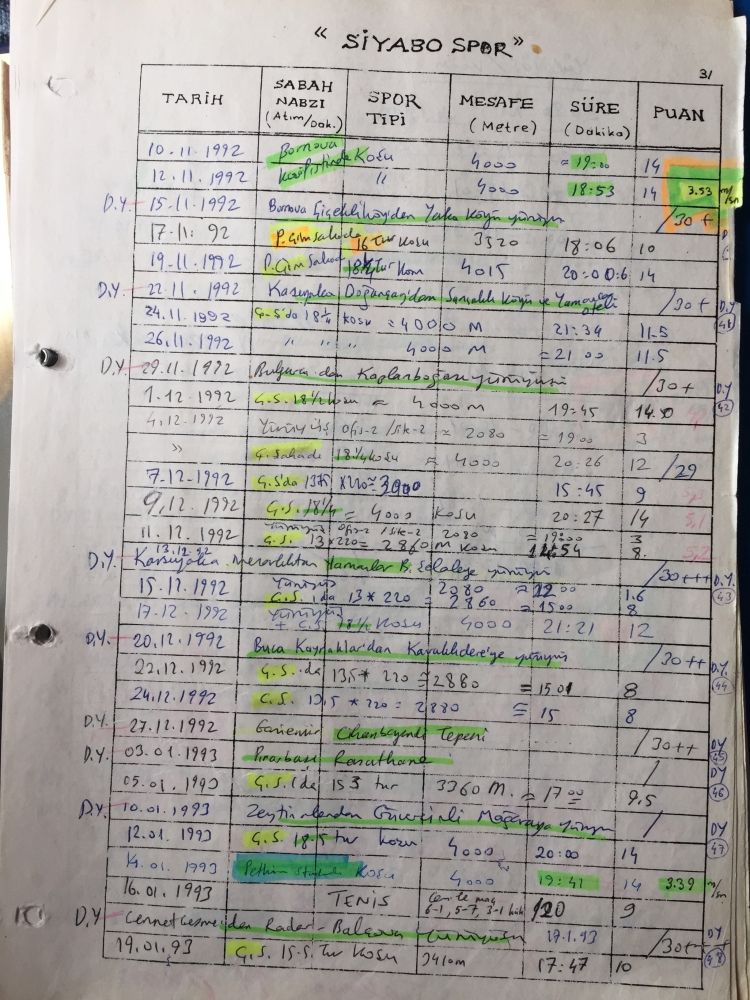 “ SİYABO SPOR ”
31
TARİH SABAH NABZI (Atım/Dak.) SPOR TİPİ MESAFE (Metre) SÜRE (Dakika) PUAN
10.11.1992 Bornova Koşu 4000 = 19:00 14
12.11.1992 " 4000 18:53 14 3.53 m/sn
D.Y. 15.11.1992 Bornova Çiçekliköy'den Yaka Köyü yürüyüş /30+
17.11. 92 P.Çim Sahada 16 Tur Koşu 3320 18:06 10
19.11.1992 P.Çim Sahada Tur Koşu 4015 20:00:6 14
D.Y. 22.11.1992 Karşıyaka Doğançay'dan Köyü ve Yamanlar /30+ D.Y
24.11.1992 Ç.S'da 18 1/4 koşu = 4000 M 21:34 11.5
26.11.1992 " " " 4000 M = 21 00 11.5
D.Y 29.11.1992 Kaplanboğazı yürüyüşü /30+ D.Y
1.12.1992 Ç.S. 18 1/2 koşu = 4000 M 19:45 14.0 42
4.12.1992 Yürüyüş ≈ 2080 = 19 00 3
" Ç.Sahada 18 1/4 koşu = 4000 20:26 12 /29
7.12.1992 Ç.S'da x220= 15:45 9
9.12.1992 Ç.S. 18 1/4 = 4000 Koşu 20:27 14
11.12.1992 Yürüyüş 2080 = 19:00 3
Ç.S. 13 x 220 = 2860 m Koşu 8.
D.Y. 13.12.92 Karşıyaka Yamanlar yürüyüş /30+++ D.Y.
43
15.12.1992 Yürüyüş 2080 = 22 00 1.6
Ç.S.'da 13 * 220 = 2860 = 15 00 8
17.12.1992 Yürüyüş + Ç.S. 18 1/4 Koşu 4000 21:21 12
D.Y. 20.12.1992 Buca Kaynaklar'dan yürüyüş /30++ D.Y.
44
22.12.1992 Ç.S.'da 13,5 * 220 = 2880 = 15.01 8
24.12.1992 Ç.S. 13,5 * 220 = 2880 = 15 8
D.Y. 27.12.1992 Tepesi /30++ DY
45
D.Y. 03.01.1993 Pınarbaşı Rasathane / DY
46
05.01.1993 Ç.S.'da tur 3360 M. = 17 00 9,5
D.Y. 10.01.1993 Zeytinlerden Güvercinli Mağaraya yürüyüş / DY
47
12.01.1993 Ç.S. 18.5 tur koşu 4000 20:00 14
14.01.1993 Petkim Koşu 4000 19:41 14 3.39 m/sn
16.01.1993 TENİS 6-1, 5-7, 3-1 120 9
D.Y Cennetçeşme'den Radar - Balçova Yürüyüşü 17.1.93 /30+
48
19.01.93 Ç.S. 15.5. Tur Koşu 3410m 17:47 10